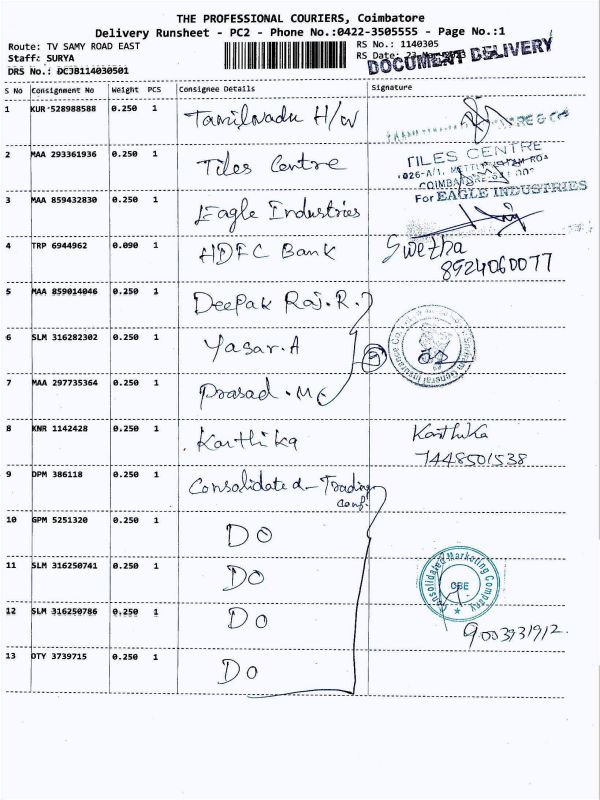 THE PROFESSIONAL COURIERS, Coimbatore
Delivery Runsheet - PC2 - Phone No.:0422-3505555 - Page No.:1
Route: TV SAMY ROAD EAST RS No.: 1140305
Staff: SURYA RS Date:
DOCUMENT DELIVERY
DRS No.: DCJB114030501
S No Consignment No Weight PCS Consignee Details Signature
1 KUR 528988588 0.250 1 Tamilnadu H/W
2 MAA 293361936 0.250 1 Tiles Centre TILES CENTRE
3 MAA 859432830 0.250 1 Eagle Industries For EAGLE INDUSTRIES
4 TRP 6944962 0.090 1 HDFC Bank Swetha
8924060077
5 MAA 859014046 0.250 1 Deepak Raj.R.
6 SLM 316282302 0.250 1 Yasar.A
7 MAA 297735364 0.250 1 Prasad.
8 KNR 1142428 0.250 1 Karthika Karthika
7448501538
9 DPM 386118 0.250 1 Consolidated - Trading
10 GPM 5251320 0.250 1 DO
11 SLM 316250741 0.250 1 DO
Consolidated Marketing Company
CBE
12 SLM 316250786 0.250 1 DO
9003931912.
13 OTY 3739715 0.250 1 DO